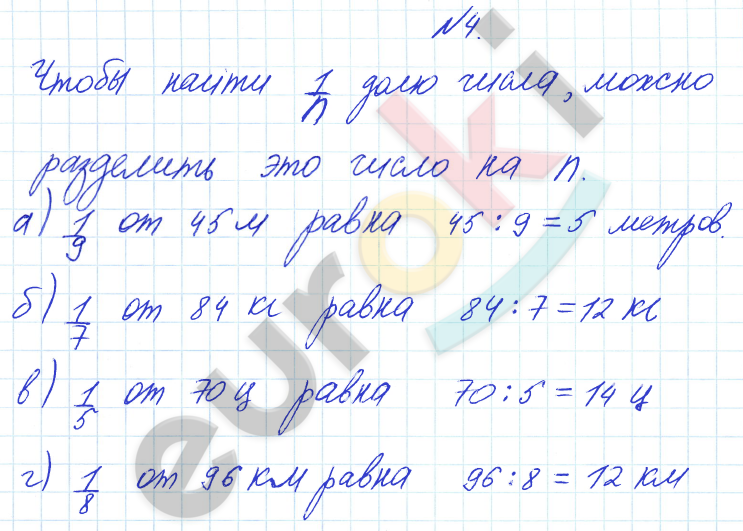 №4.
Чтобы найти 1/n долю числа, можно
разделить это число на n.
а) 1/9 от 45 м равна 45 : 9 = 5 метров.
б) 1/7 от 84 кг равна 84 : 7 = 12 кг
в) 1/5 от 70 ц равна 70 : 5 = 14 ц
г) 1/8 от 96 км равна 96 : 8 = 12 км
euroki